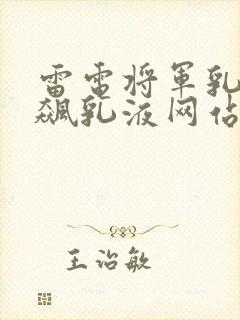 雷电将军乳
飙乳液网站
王治敏